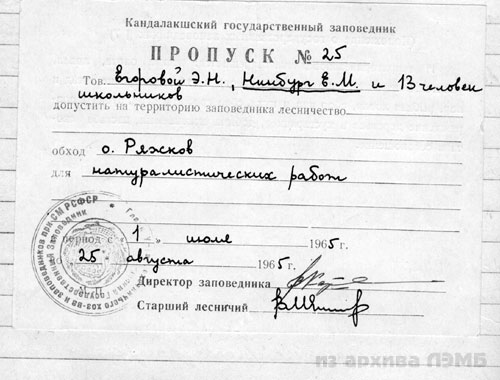 Кандалакшский государственный заповедник
ПРОПУСК № 25
Тов. Егоровой Э.Н., Нинбург Е.М. и 13 человек
школьников
допустить на территорию заповедника лесничество
обход о. Ряжков
для натуралистических работ
период с 1 " июля 1965 г.
25 " августа 1965 г.
Директор заповедника
Старший лесничий
из архива ЛЭМБ